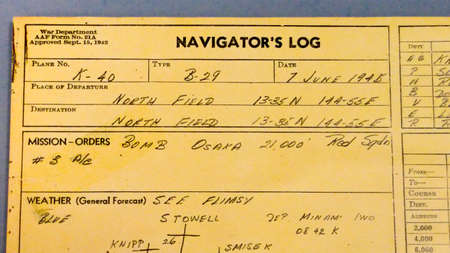 War Department
AAF Form No. 21A
Approved Sept. 15, 1942
NAVIGATOR'S LOG
PLANE NO. TYPE DATE
K-40 B-29 7 JUNE 1945
PLACE OF DEPARTURE
NORTH FIELD 13-35 N 144-55 E
DESTINATION
NORTH FIELD 13-35 N 144-55 E
MISSION—ORDERS BOMB OSAKA 21,000' Rad Sqdn
# 3 A/C
WEATHER (General Forecast) SEE FLIMSY
BLUE STOWELL MINAMI IWO
26 0842 K
KNIPP SMISEK
From—
To—
Course
Dist.
2,000
4,000
6,000
8,000